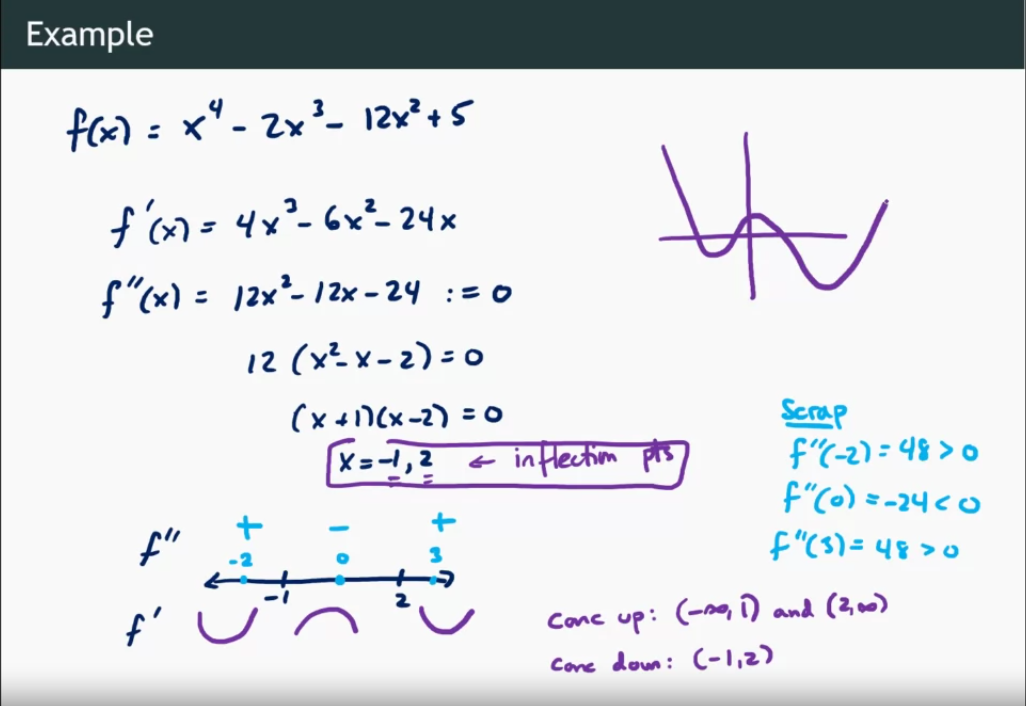 Example
f(x) = x⁴ - 2x³ - 12x² + 5
f'(x) = 4x³ - 6x² - 24x
f''(x) = 12x² - 12x - 24 := 0
12 (x² - x - 2) = 0
(x + 1)(x - 2) = 0
x = -1, 2 ← inflection pts
Scrap
f''(-2) = 48 > 0
f''(0) = -24 < 0
f''(3) = 48 > 0
f'' + - +
-2 0 3
-1 2
f'
conc up: (-∞, 1) and (2, ∞)
conc down: (-1, 2)